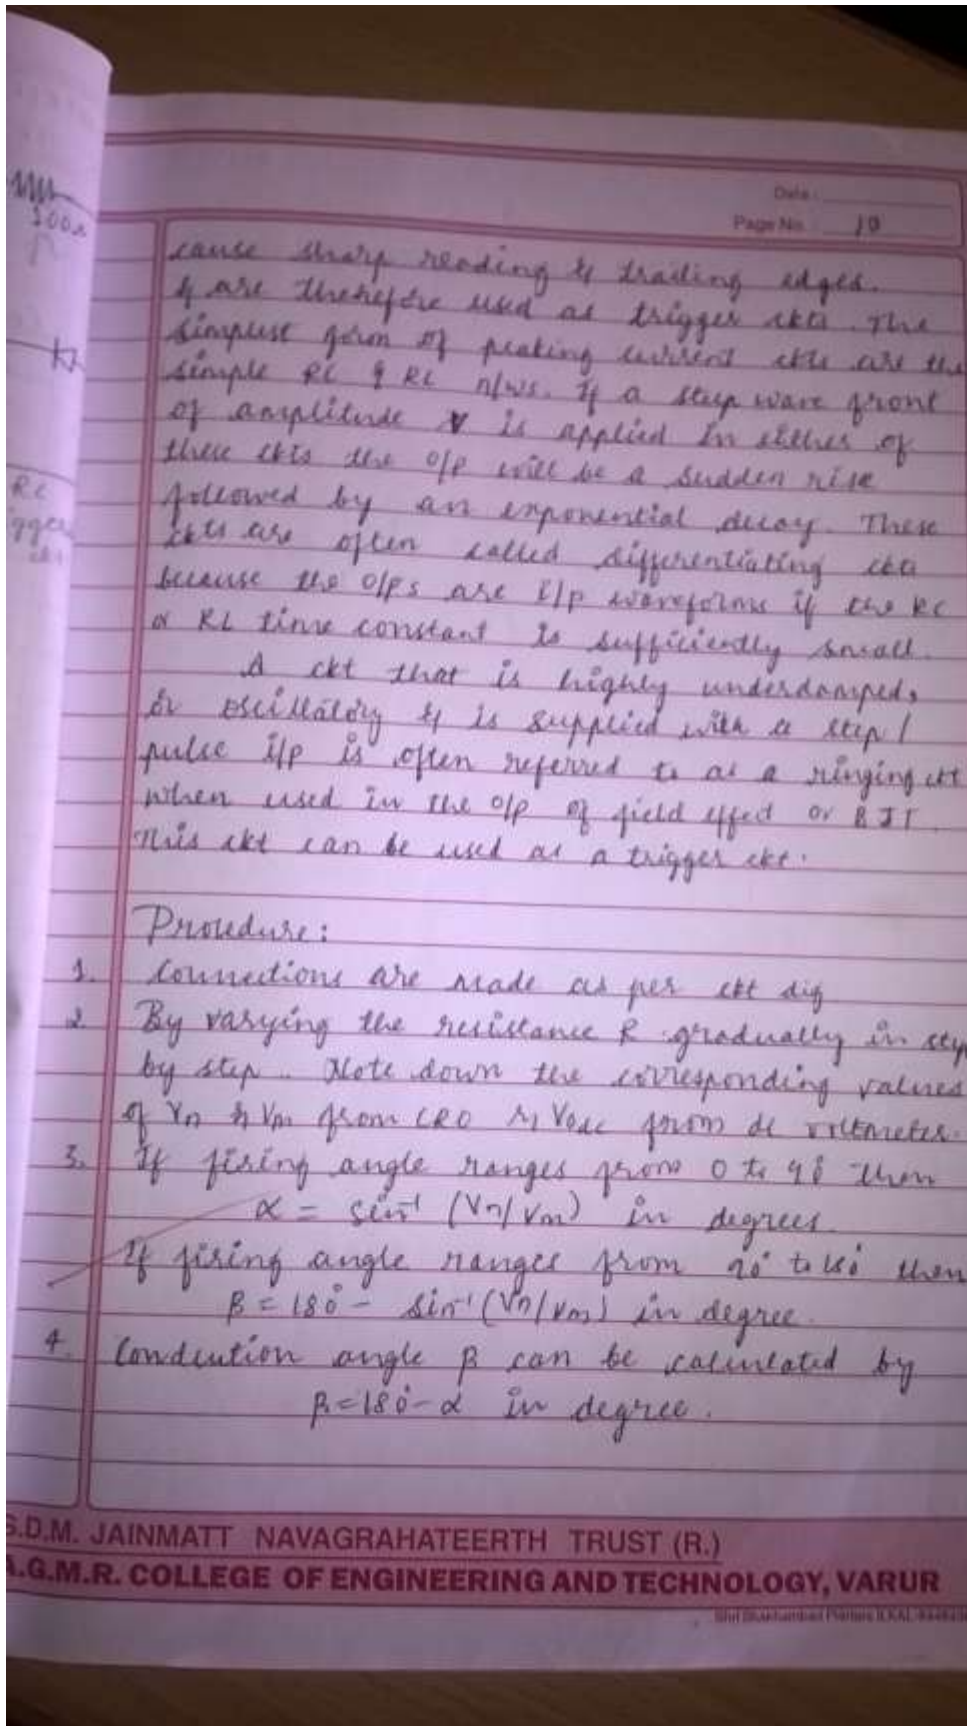 Date :
Page No. 10
100Ω
RC
cause sharp reading & trading edges.
& are therefore used as trigger ckts. The
simplest form of peaking current ckts are the
simple RC & RL n/ws. If a step wave front
of amplitude V is applied in either of
these ckts the o/p will be a sudden rise
followed by an exponential decay. These
ckts are often called differentiating ckts
because the o/ps are i/p waveforms if the RC
or RL time constant is sufficiently small.
A ckt that is highly underdamped,
or oscillatory & is supplied with a step/
pulse i/p is often referred to as a ringing ckt
when used in the o/p of field effect or BJT.
This ckt can be used as a trigger ckt.
Procedure:
1. Connections are made as per ckt dig
2. By varying the resistance R gradually in step
by step. Note down the corresponding values
of Vn & Vm from CRO & Vodc from dc voltmeter.
3. If firing angle ranges from 0 to 90° then
α = sin⁻¹ (Vn/Vm) in degrees.
If firing angle ranges from 90° to 180° then
β = 180° - sin⁻¹ (Vn/Vm) in degree.
4. Condcution angle β can be calculated by
β = 180° - α in degree.
S.D.M. JAINMATT NAVAGRAHATEERTH TRUST (R.)
A.G.M.R. COLLEGE OF ENGINEERING AND TECHNOLOGY, VARUR